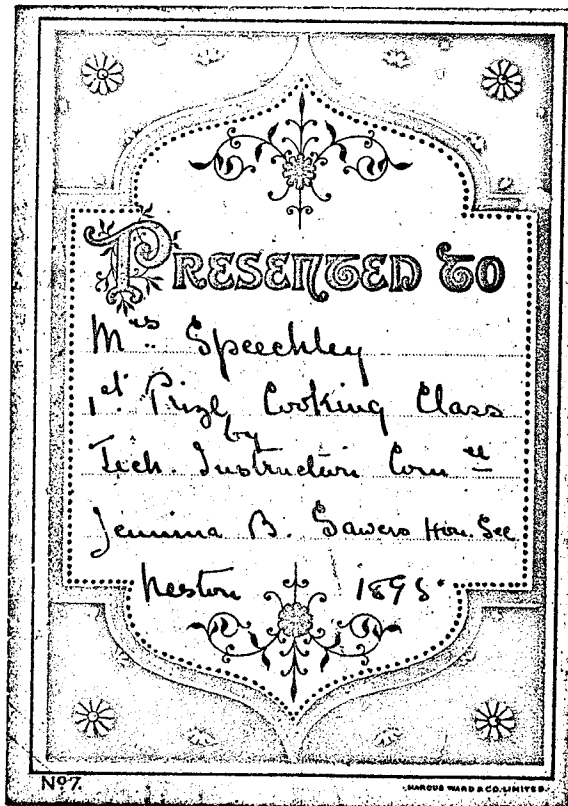 PRESENTED TO
Mrs. Speechley
1st. Prize Cooking Class
by
Tech. Instruction Comee
Jemima B. Sawers Hon. Sec
Neston 1895.
No 7.
MARCUS WARD & CO. LIMITED.